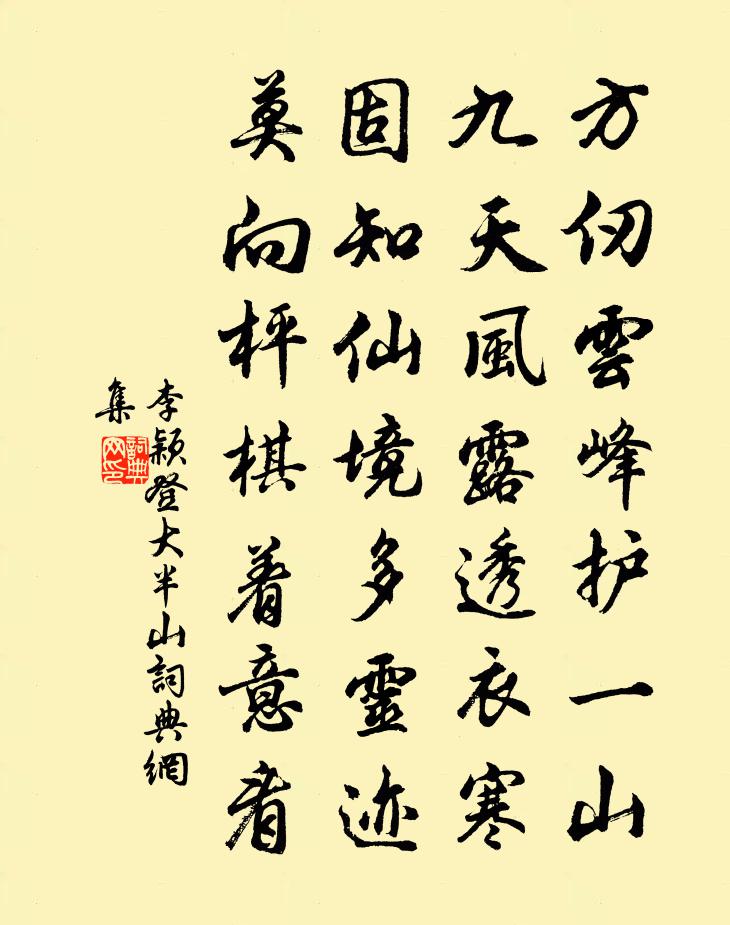 方仞雲峰护一山
九天風露透衣寒
固知仙境多靈迹
莫向枰棋着意看
李穎登大半山詞典網
集
詞典
网印